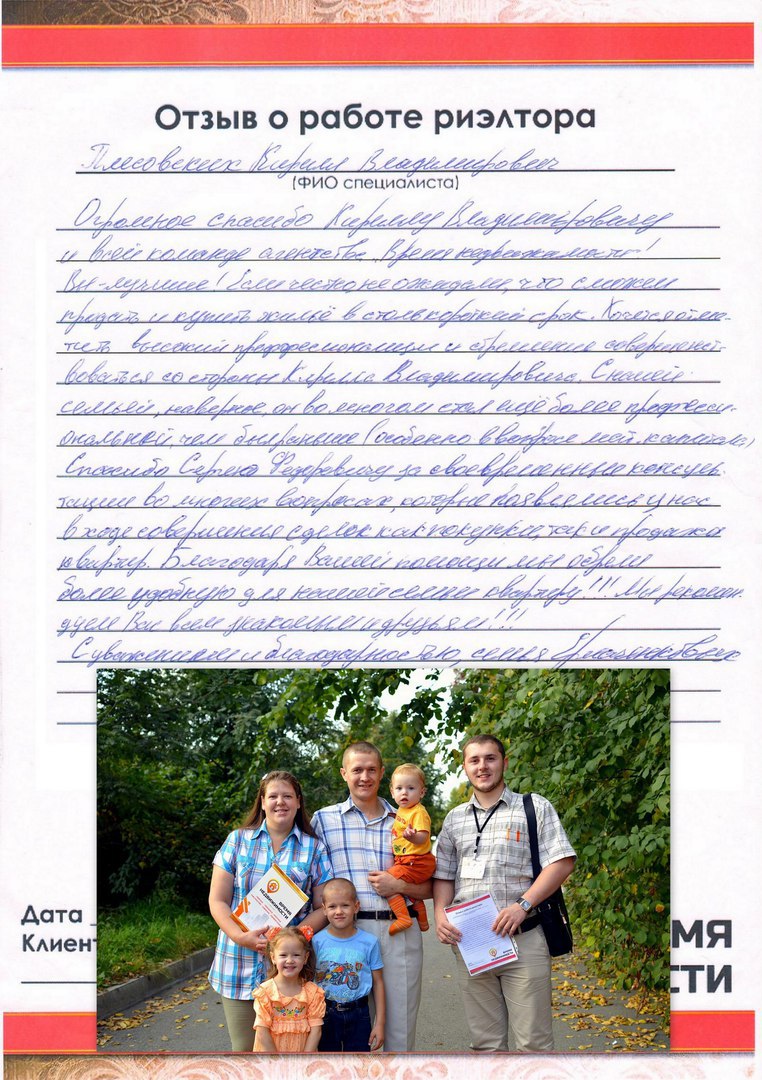 Отзыв о работе риэлтора
Плесовских Кирилл Владимирович
(ФИО специалиста)
Огромное спасибо Кириллу Владимировичу
и всей команде агентства "Время недвижимости"!
Вы - лучшие! Если честно, не ожидали, что сможем
продать и купить жильё в столь короткий срок. Хочется отме-
тить высокий профессионализм и стремление совершенст-
воваться со стороны Кирилла Владимировича. С нашей
семьёй, наверное, он во многом стал ещё более професси-
ональней, чем был раньше (особенно в вопросе мат. капитала)
Спасибо Сергею Федоровичу за своевременные консуль-
тации во многих вопросах, которые появлялись у нас
в ходе совершения сделок как покупки, так и продажи
квартир. Благодаря Вашей помощи мы обрели
более удобную для нашей семьи квартиру!!! Мы рекомен-
дуем Вас всем знакомым и друзьям!!!
С уважением и благодарностью, семья
ВРЕМЯ
НЕДВИЖИМОСТИ
Дата
Клиент
МЯ
СТИ